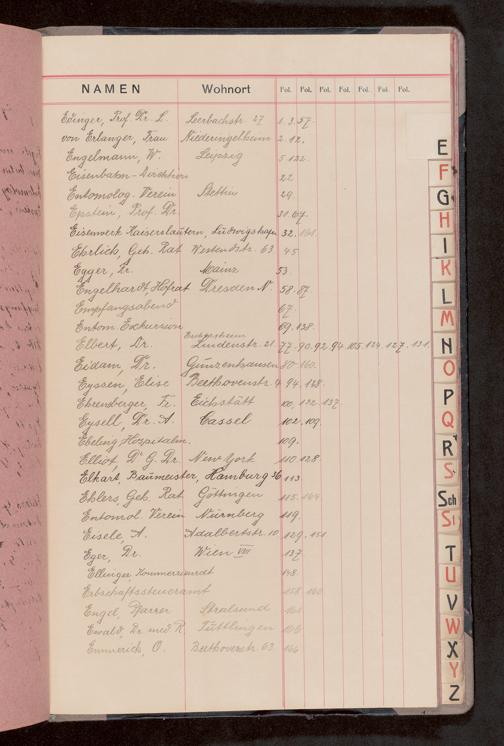 NAMEN Wohnort Fol. Fol. Fol. Fol. Fol. Fol. Fol.
Edinger, Prof. Dr. L. Leerbachstr. 27 1. 3. 57.
von Erlanger, Frau Niederingelheim 2. 12.
Engelmann, W. Leipzig 5. 132.
Eisenbahn-Direktion 22
Entomolog. Verein Stettin 29.
Epstein, Prof. Dr. 31. 67.
Eisenwerk Kaiserslautern, Ludwigshafen 32. 141.
Ehrlich, Geh. Rat Westendstr. 63 45
Egger, Dr. Mainz 53.
Engelhardt, Hofrat Dresden N. 58. 87.
Empfangsabend 67.
Entom. Exkursion 69. 128.
Elbert, Dr. Lindenstr. 21. 77. 90. 92. 94. 105. 124. 127. 131.
Eidam, Dr. Gunzenhausen 80. 160.
Eyssen, Elise Beethovenstr. 9 94. 128.
Ehrensberger, Fr. Eichstätt 100, 122. 137.
Eysell, Dr. A. Cassel 102. 109.
Ebeling Hospitalm. 109.
Elliot, D. G. Dr. New York 110. 128.
Elkart, Baumeister, Hamburg 36 113
Ehlers, Geh. Rat Göttingen 115. 144
Entomol. Verein Nürnberg 119.
Eisele, A. Adalbertstr. 10 129. 151
Eger, Dr. Wien VIII 137
Ellinger, Kommerzienrat 148
Erbschaftssteueramt 158 160
Engel, Pfarrer Stralsund 161
Ewald, Dr. med. R. Tuttlingen 166
Emmerich, O. Beethovenstr. 63 166
E
F
G
H
I
K
L
M
N
O
P
Q
R
S
Sch
St
T
U
V
W
X
Y
Z